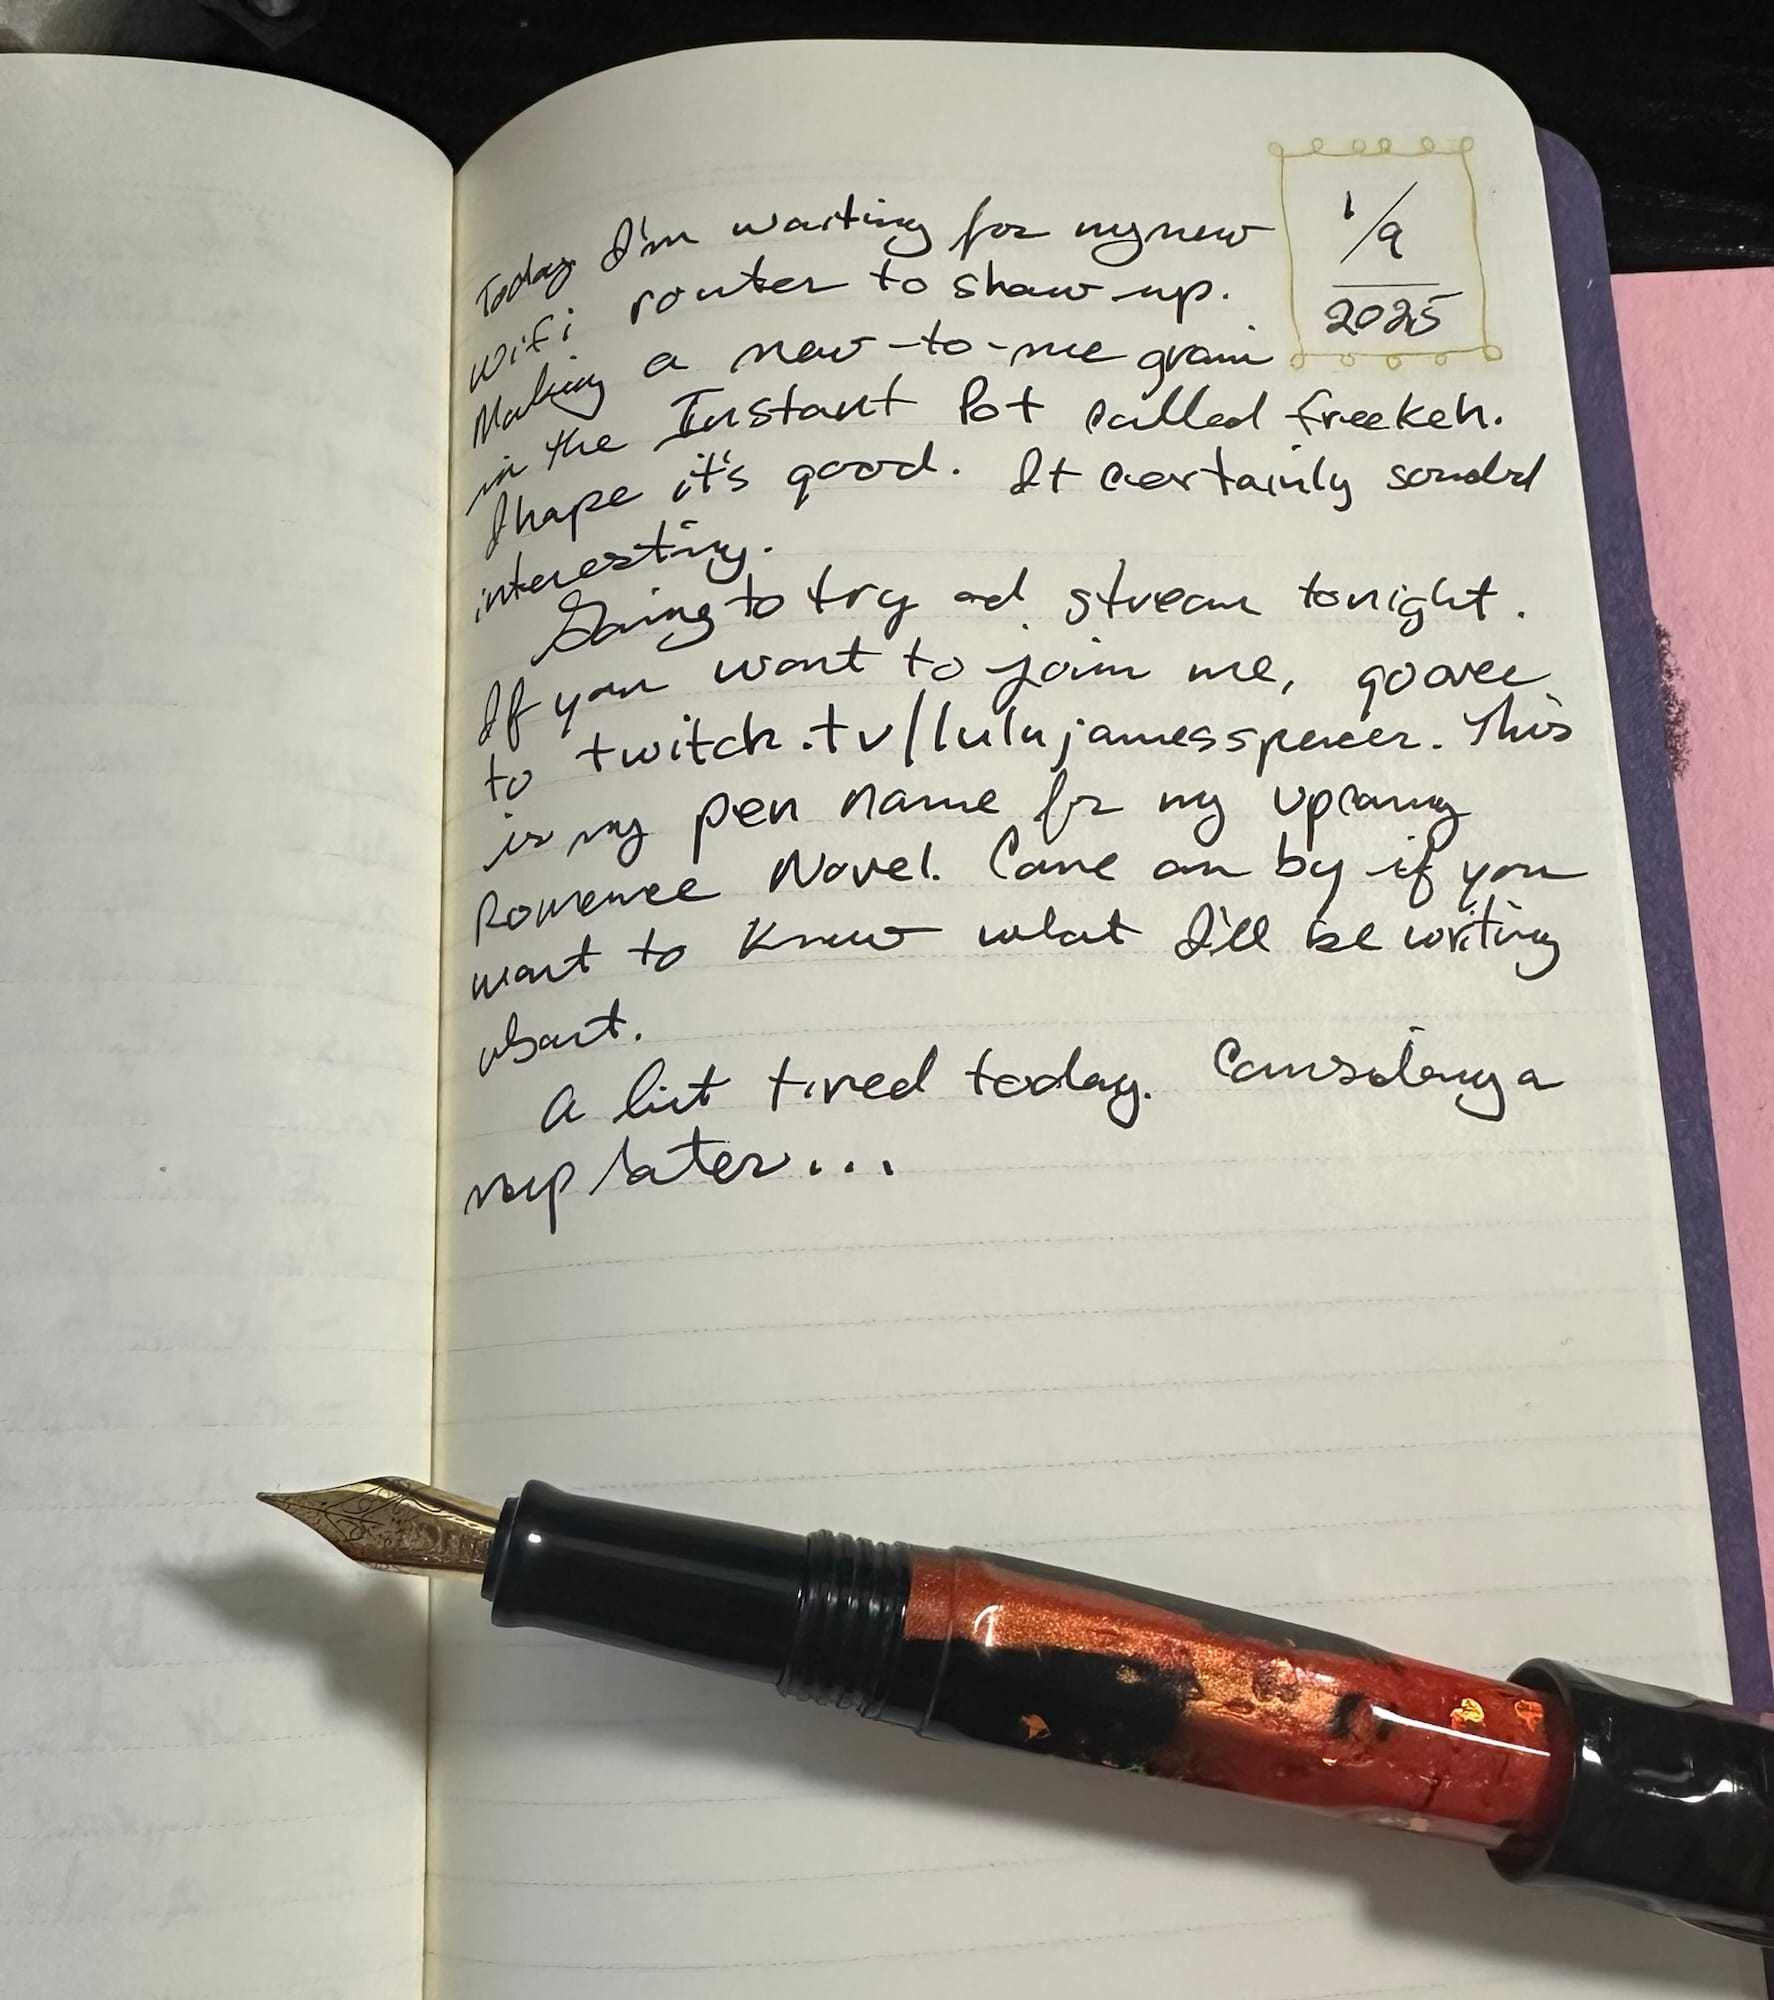 1/9
2025
Today I'm waiting for my new
wifi router to show up.
Making a new-to-me grain
in the Instant Pot called freekeh.
I hope it's good. It certainly sounded
interesting.
Going to try and stream tonight.
If you want to join me, go over
to twitch.tv/lulujamesspencer. This
is my pen name for my upcoming
Romance Novel. Come on by if you
want to know what I'll be writing
about.
A bit tired today. Considering a
nap later...